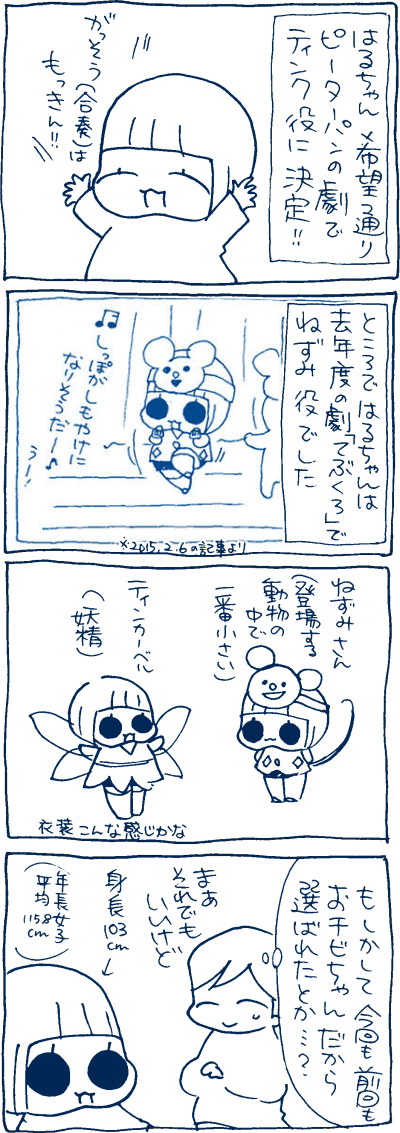 はるちゃん 希望通り
ピーターパンの劇で
ティンク役に 決定!!
がっそう(合奏)は
もっきん!!
ところで はるちゃんは
去年度の劇「てぶくろ」で
ねずみ 役でした
♫ しっぽが しもやけに
なりそうだー♪
うー!
※2015.2.6の記事より
ねずみさん
(登場する
動物の
中で
一番小さい)
ティンカーベル
(妖精)
衣装 こんな感じかな
もしかして 今回も 前回も
おチビちゃん だから
選ばれたとか…?
まぁ
それでも
いいけど
身長 103cm
↓
(年長女子
平均
115.8
cm)